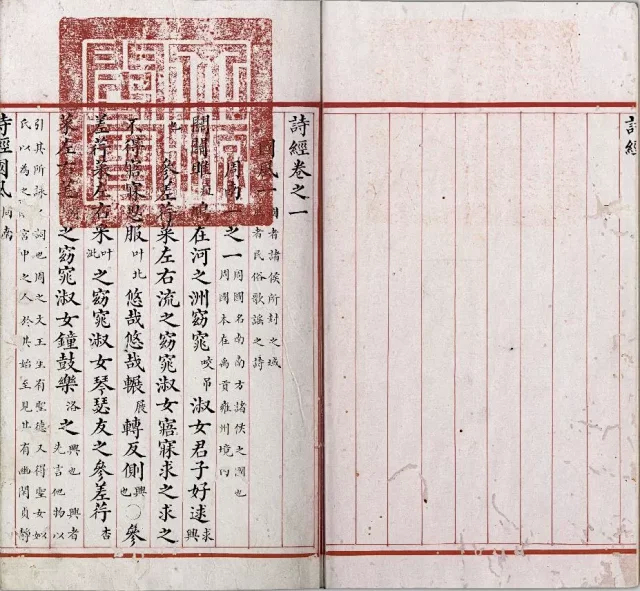 詩經
詩經卷之一
國風一 國者諸侯所封之域
者民俗歌謠之詩
周南一之一 周國名南南方諸侯之國也
周國本在禹貢雍州境內
關關雎鳩在河之洲窈窕 咬吊 淑女君子好逑 求 興
也 參差荇菜左右流之窈窕淑女寤寐求之求之
不得寤寐思服 叶北 悠哉悠哉輾 展 轉反側 興也 ○參
差荇菜左右采 叶泚 之窈窕淑女琴瑟友之參差荇 杏
菜左右芼之窈窕淑女鐘鼓樂 洛 之 興也興者
先言他物以
引其所詠之詞也周之文王生有聖德又得聖女如
氏以為之 宮中之人於其始至見其有幽閒貞靜
詩經國風 周南